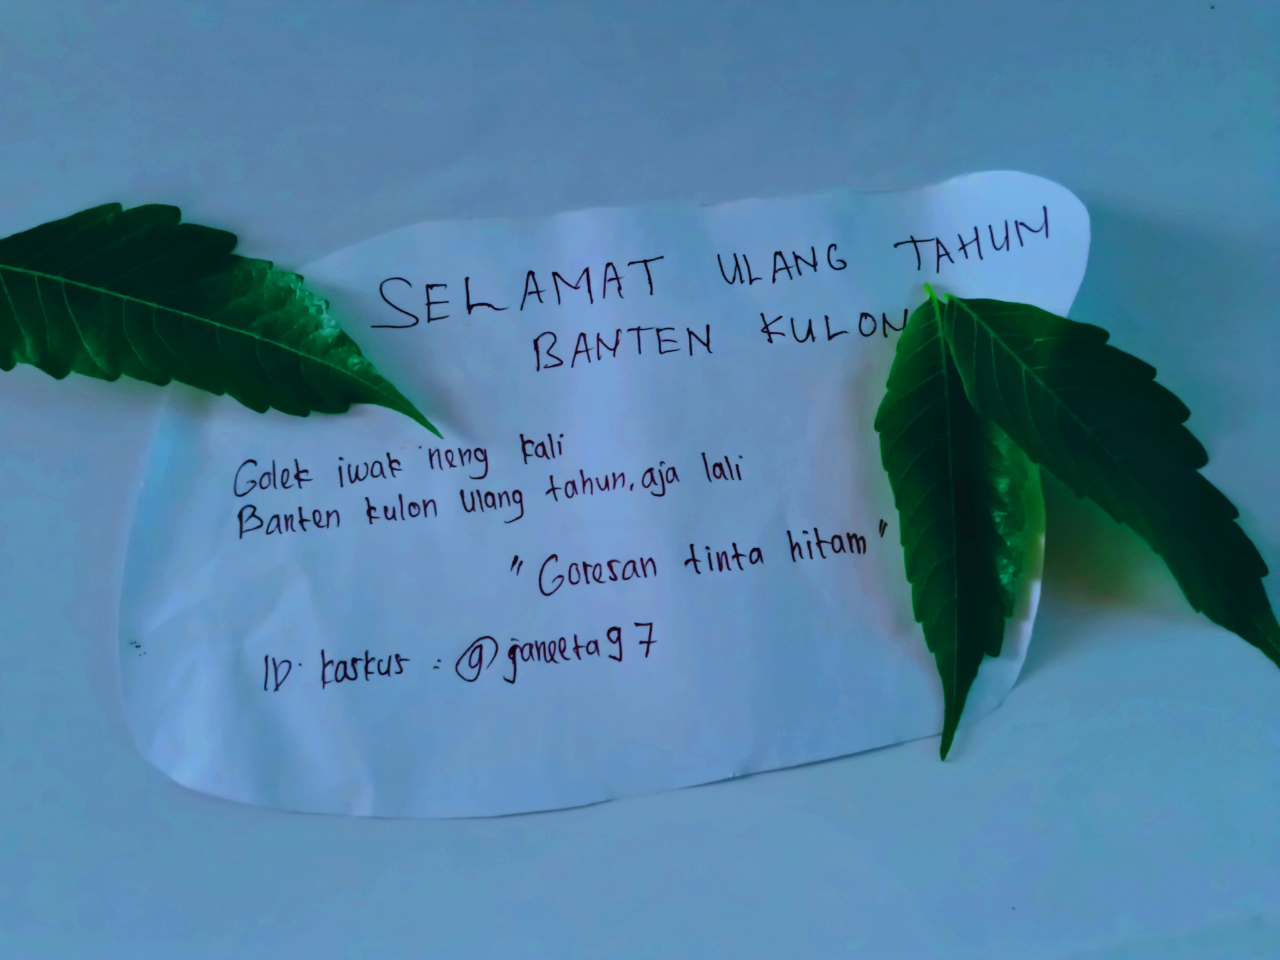 SELAMAT ULANG TAHUN
BANTEN KULON
Golek iwak neng kali
Banten kulon ulang tahun, aja lali
"Goresan tinta hitam"
ID. kaskus : @janeeta97